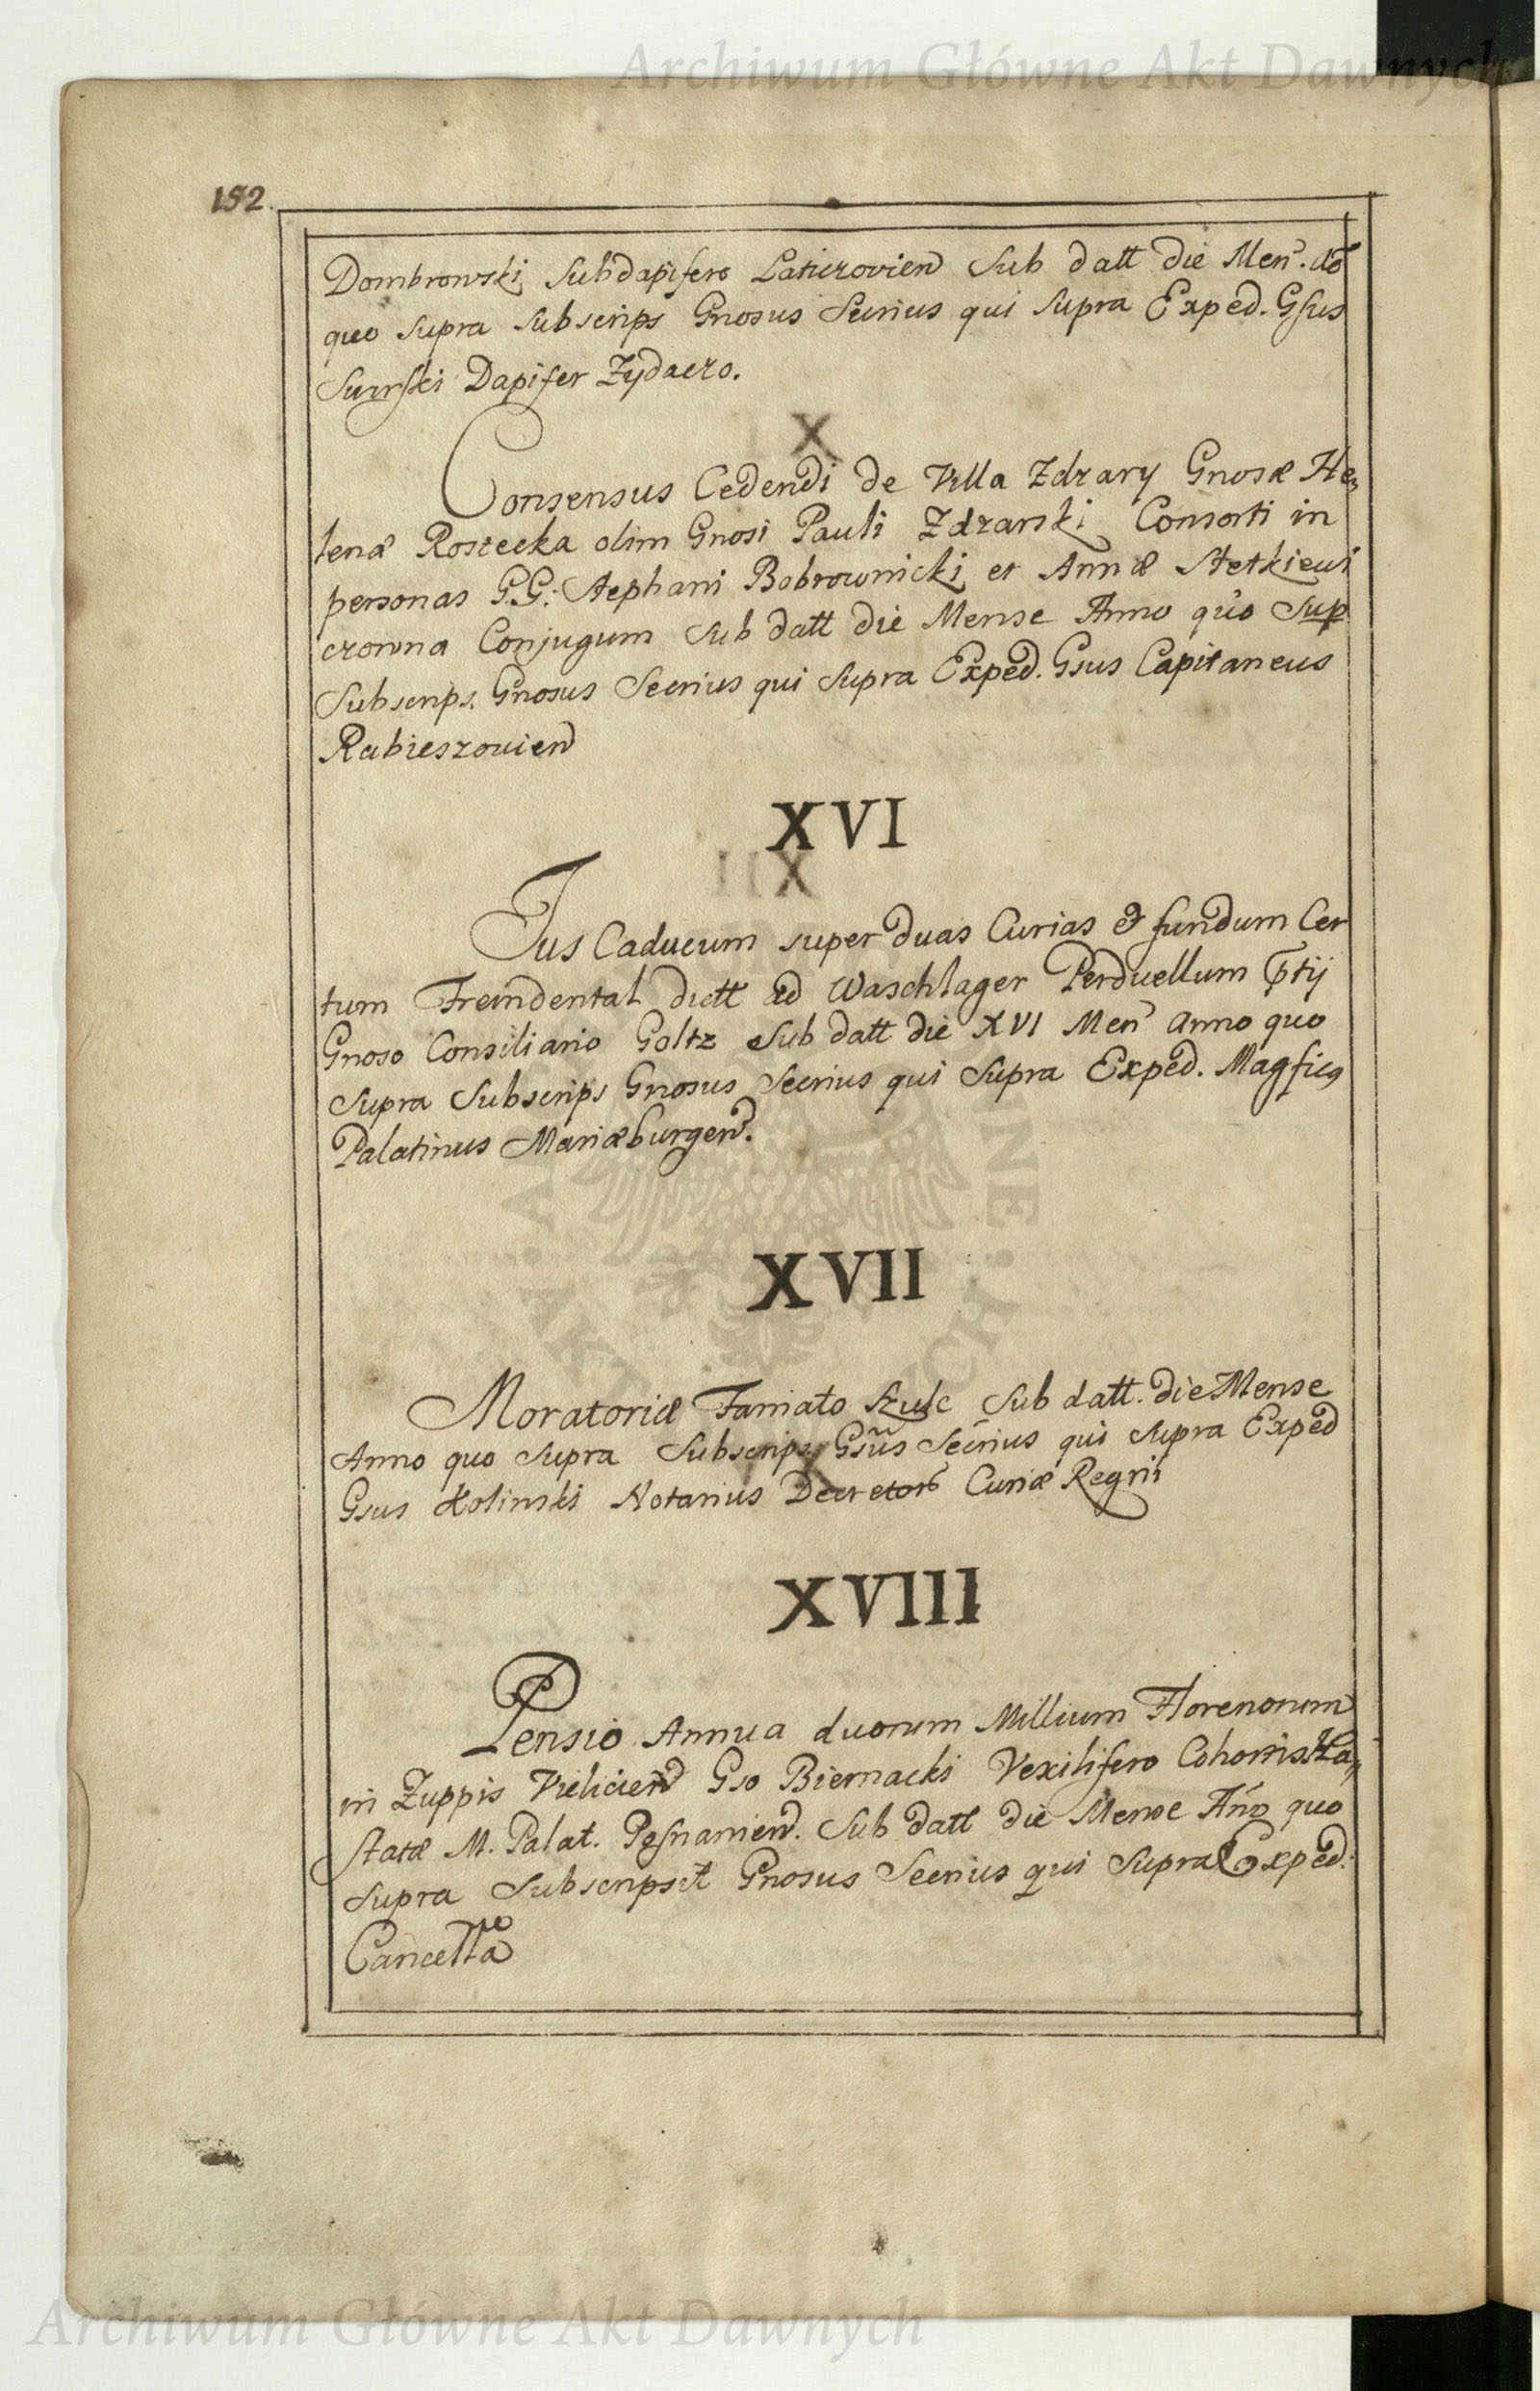 Archiwum Główne Akt Dawnych
152.
Dombrowski Subdapifero Laticzovien Sub datt die Men. Ao
quo supra subscrips Gnosus Secrius qui supra Exped. Gsus
Dapifer Zydacz.
Consensus Cedendi de Villa Zdzary Gnosæ He,
lenæ Roscecka olim Gnosi Pauli Zdzarski Consorti in
personas G.G. Stephani Bobrownicki et Annæ Stetkiewi
czowna Conjugum sub datt die Mense Anno quo Sup
Subscrips. Gnosus Secrius qui supra Exped. Gsus Capitaneus
Rubieszovien
XVI
Jus Caducum super duas Curias et fundum Cer
tum Freindental dictt ad Waschlager Perduellum
Gnoso Consiliario Goltz sub datt die XVI Men Anno quo
supra subscrips Gnosus Secrius qui supra Exped. Magficus
Palatinus Mariæburgen.
XVII
Moratoriæ Famato Szulc sub datt. die Mense
Anno quo supra subscrips. Gsus Secrius qui supra Exped
Gsus Notarius Decretor Curiæ Regni
XVIII
Pensio Annua duorum Millium Florenorum
in Zuppis Vielicien Gso Biernacki Vexilifero Cohortis Ha,
statæ M. Palat. Posnanien. sub datt die Mense Ano quo
supra subscripsit Gnosus Secrius qui supra Exped.
Cancellà
Archiwum Główne Akt Dawnych